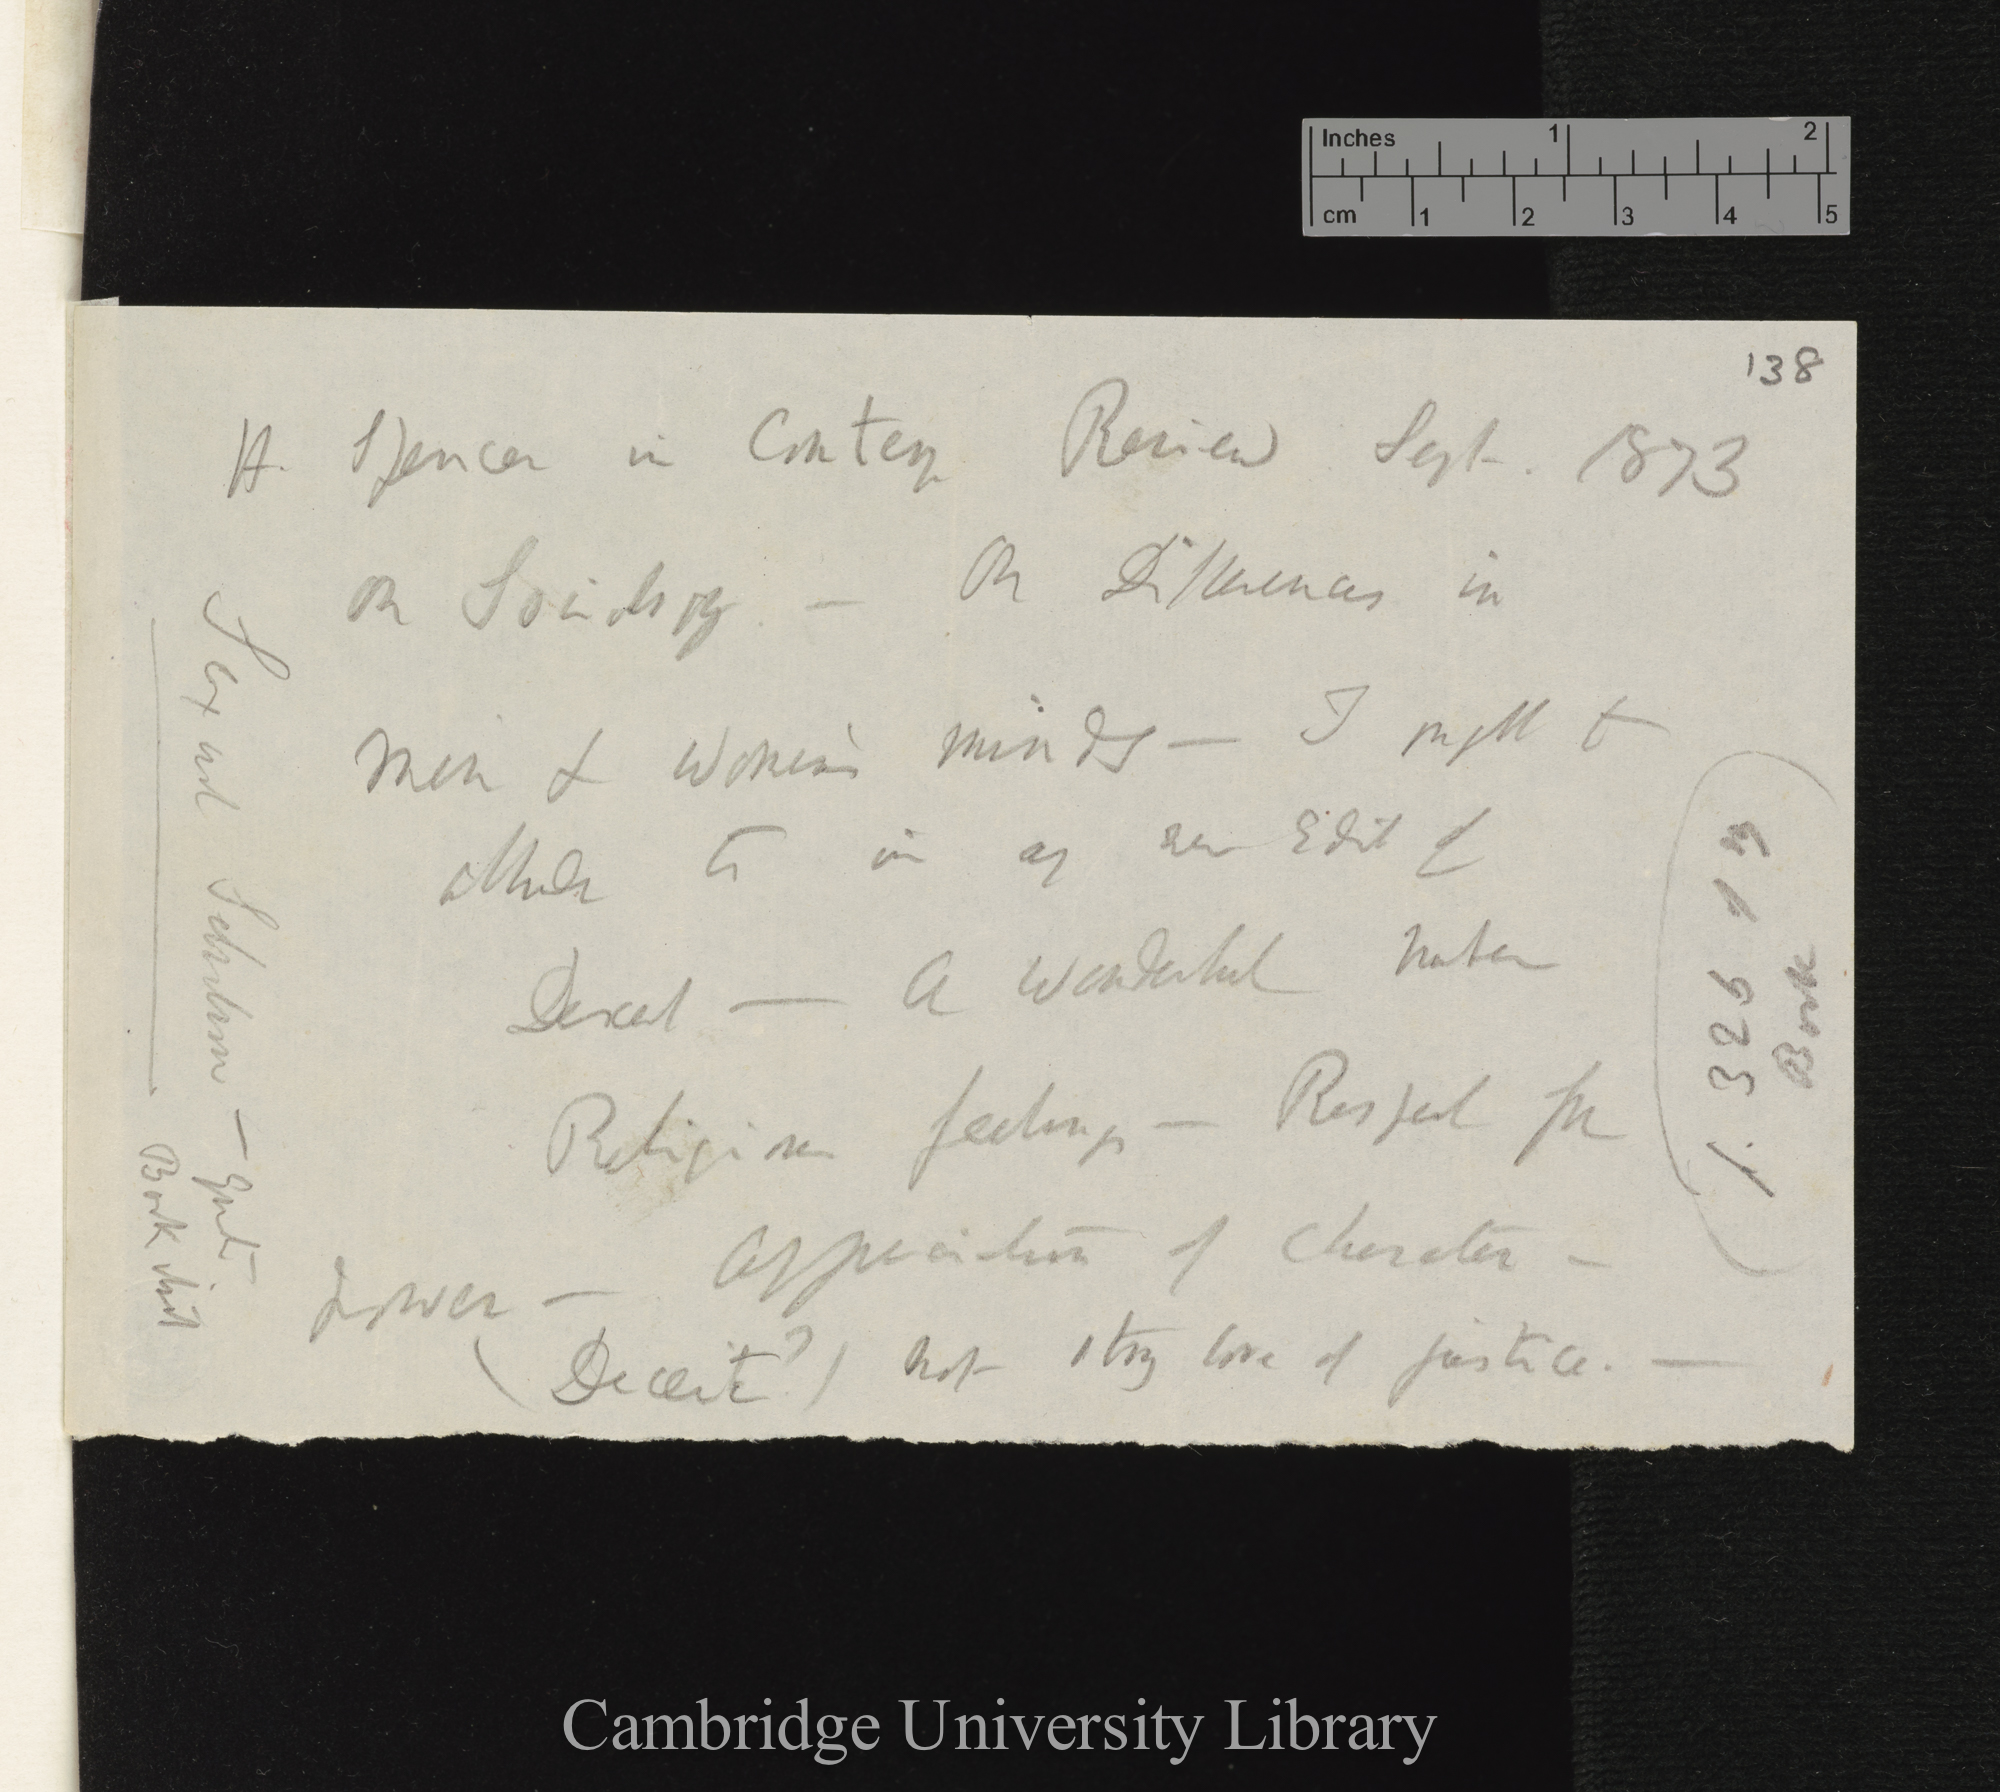 138
H. Spencer in Contemp Review Sept. 1873
on Sociology — On Differences in
men & women's minds — I might to
allude to in any new Edit of
Descent — A wonderful
Religious feelings — Respect for
Power — appreciation of character —
(Deceit?) not strong love of justice. —
Sexual Selection — Quote
Book
p. 326
Book
Inches 1 2
cm 1 2 3 4 5
Cambridge University Library